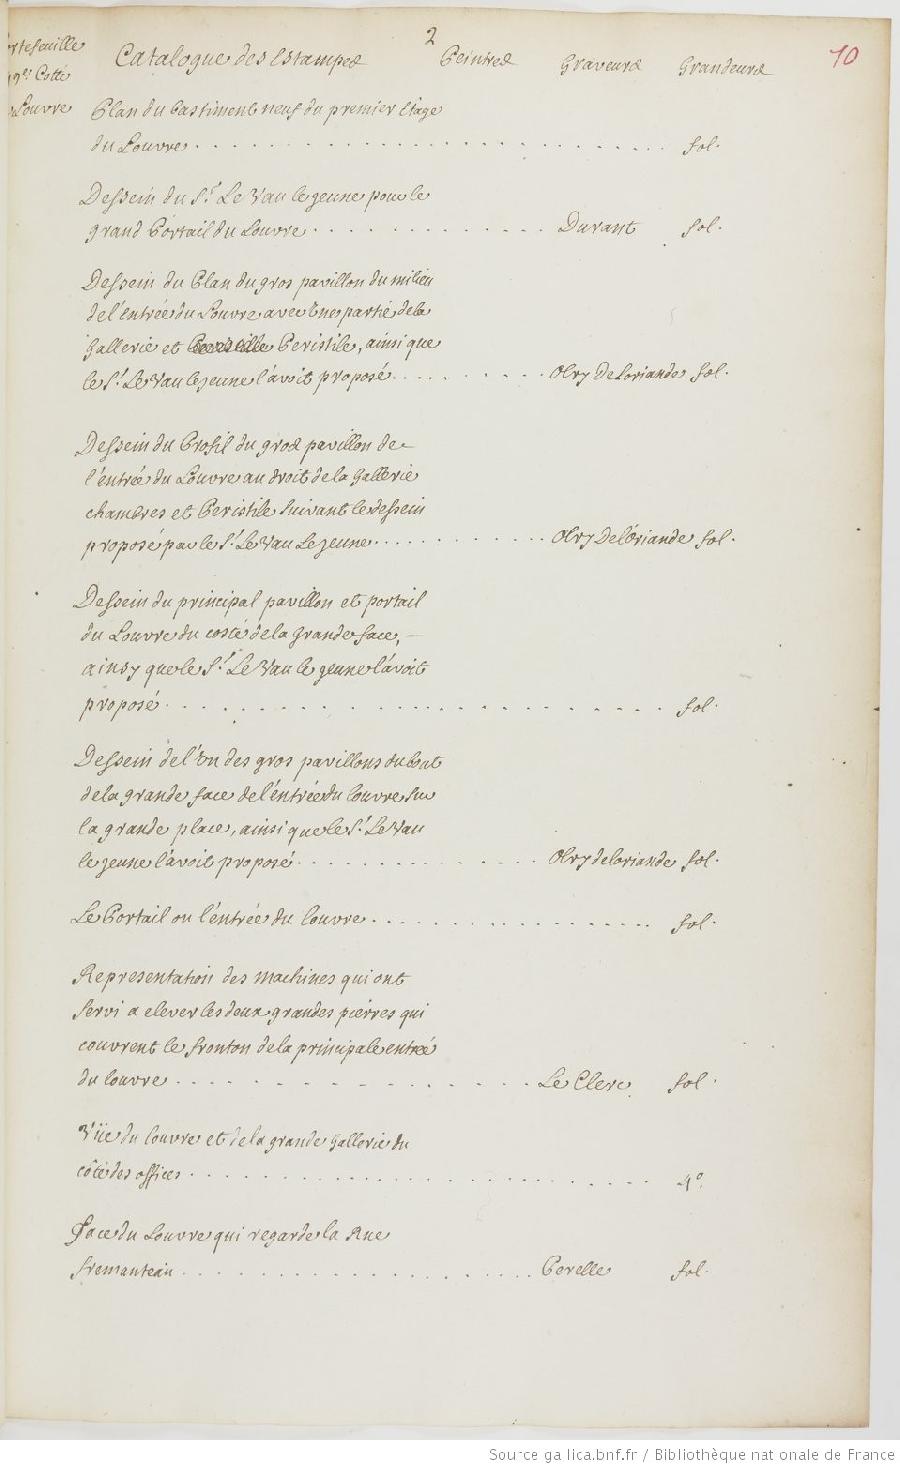 2
10
Portefeuille Catalogue des Estampes Peintres Graveurs Grandeurs
Cotté
Louvre Plan du bastiment neuf du premier Etage
du Louvre . . . . . . fol.
Dessein du Sr. Le Vau le jeune pour le
grand Portail du Louvre . . . . . . Durant fol.
Dessein du Plan du gros pavillon du milieu
de l'entrée du Louvre avec une partie de la
Gallerie et Peristile, ainsi que
le Sr. Le Vau le jeune l'avoit proposé . . . . . . Olry De Loriande fol.
Dessein du Profil du gros pavillon de
l'entrée du Louvre au droit de la Gallerie
chambres et Peristile suivant le dessein
proposé par le Sr. Le Vau Le jeune . . . . . . Olry De l'Oriande fol.
Dessein du principal pavillon et portail
du Louvre du costé de la Grande face,
ainsy que le Sr. Le Vau le jeune l'avoit
proposé . . . . . . fol.
Dessein de l'un des gros pavillons du bout
de la grande face de l'entrée du louvre sur
la grande place, ainsi que le Sr. Le Vau
le jeune l'avoit proposé . . . . . . Olry de loriande fol.
Le Portail ou l'entrée du louvre . . . . . . fol.
Representation des machines qui ont
servi a elever les deux grandes pierres qui
couvrent le fronton de la principale entrée
du louvre . . . . . . Le Clerc fol.
Vüe du louvre et de la grande Gallerie du
côté des offices . . . . . . 4°.
Face du Louvre qui regarde la Rue
fremanteau . . . . . . Perelle fol.
Source gallica.bnf.fr / Bibliothèque nationale de France